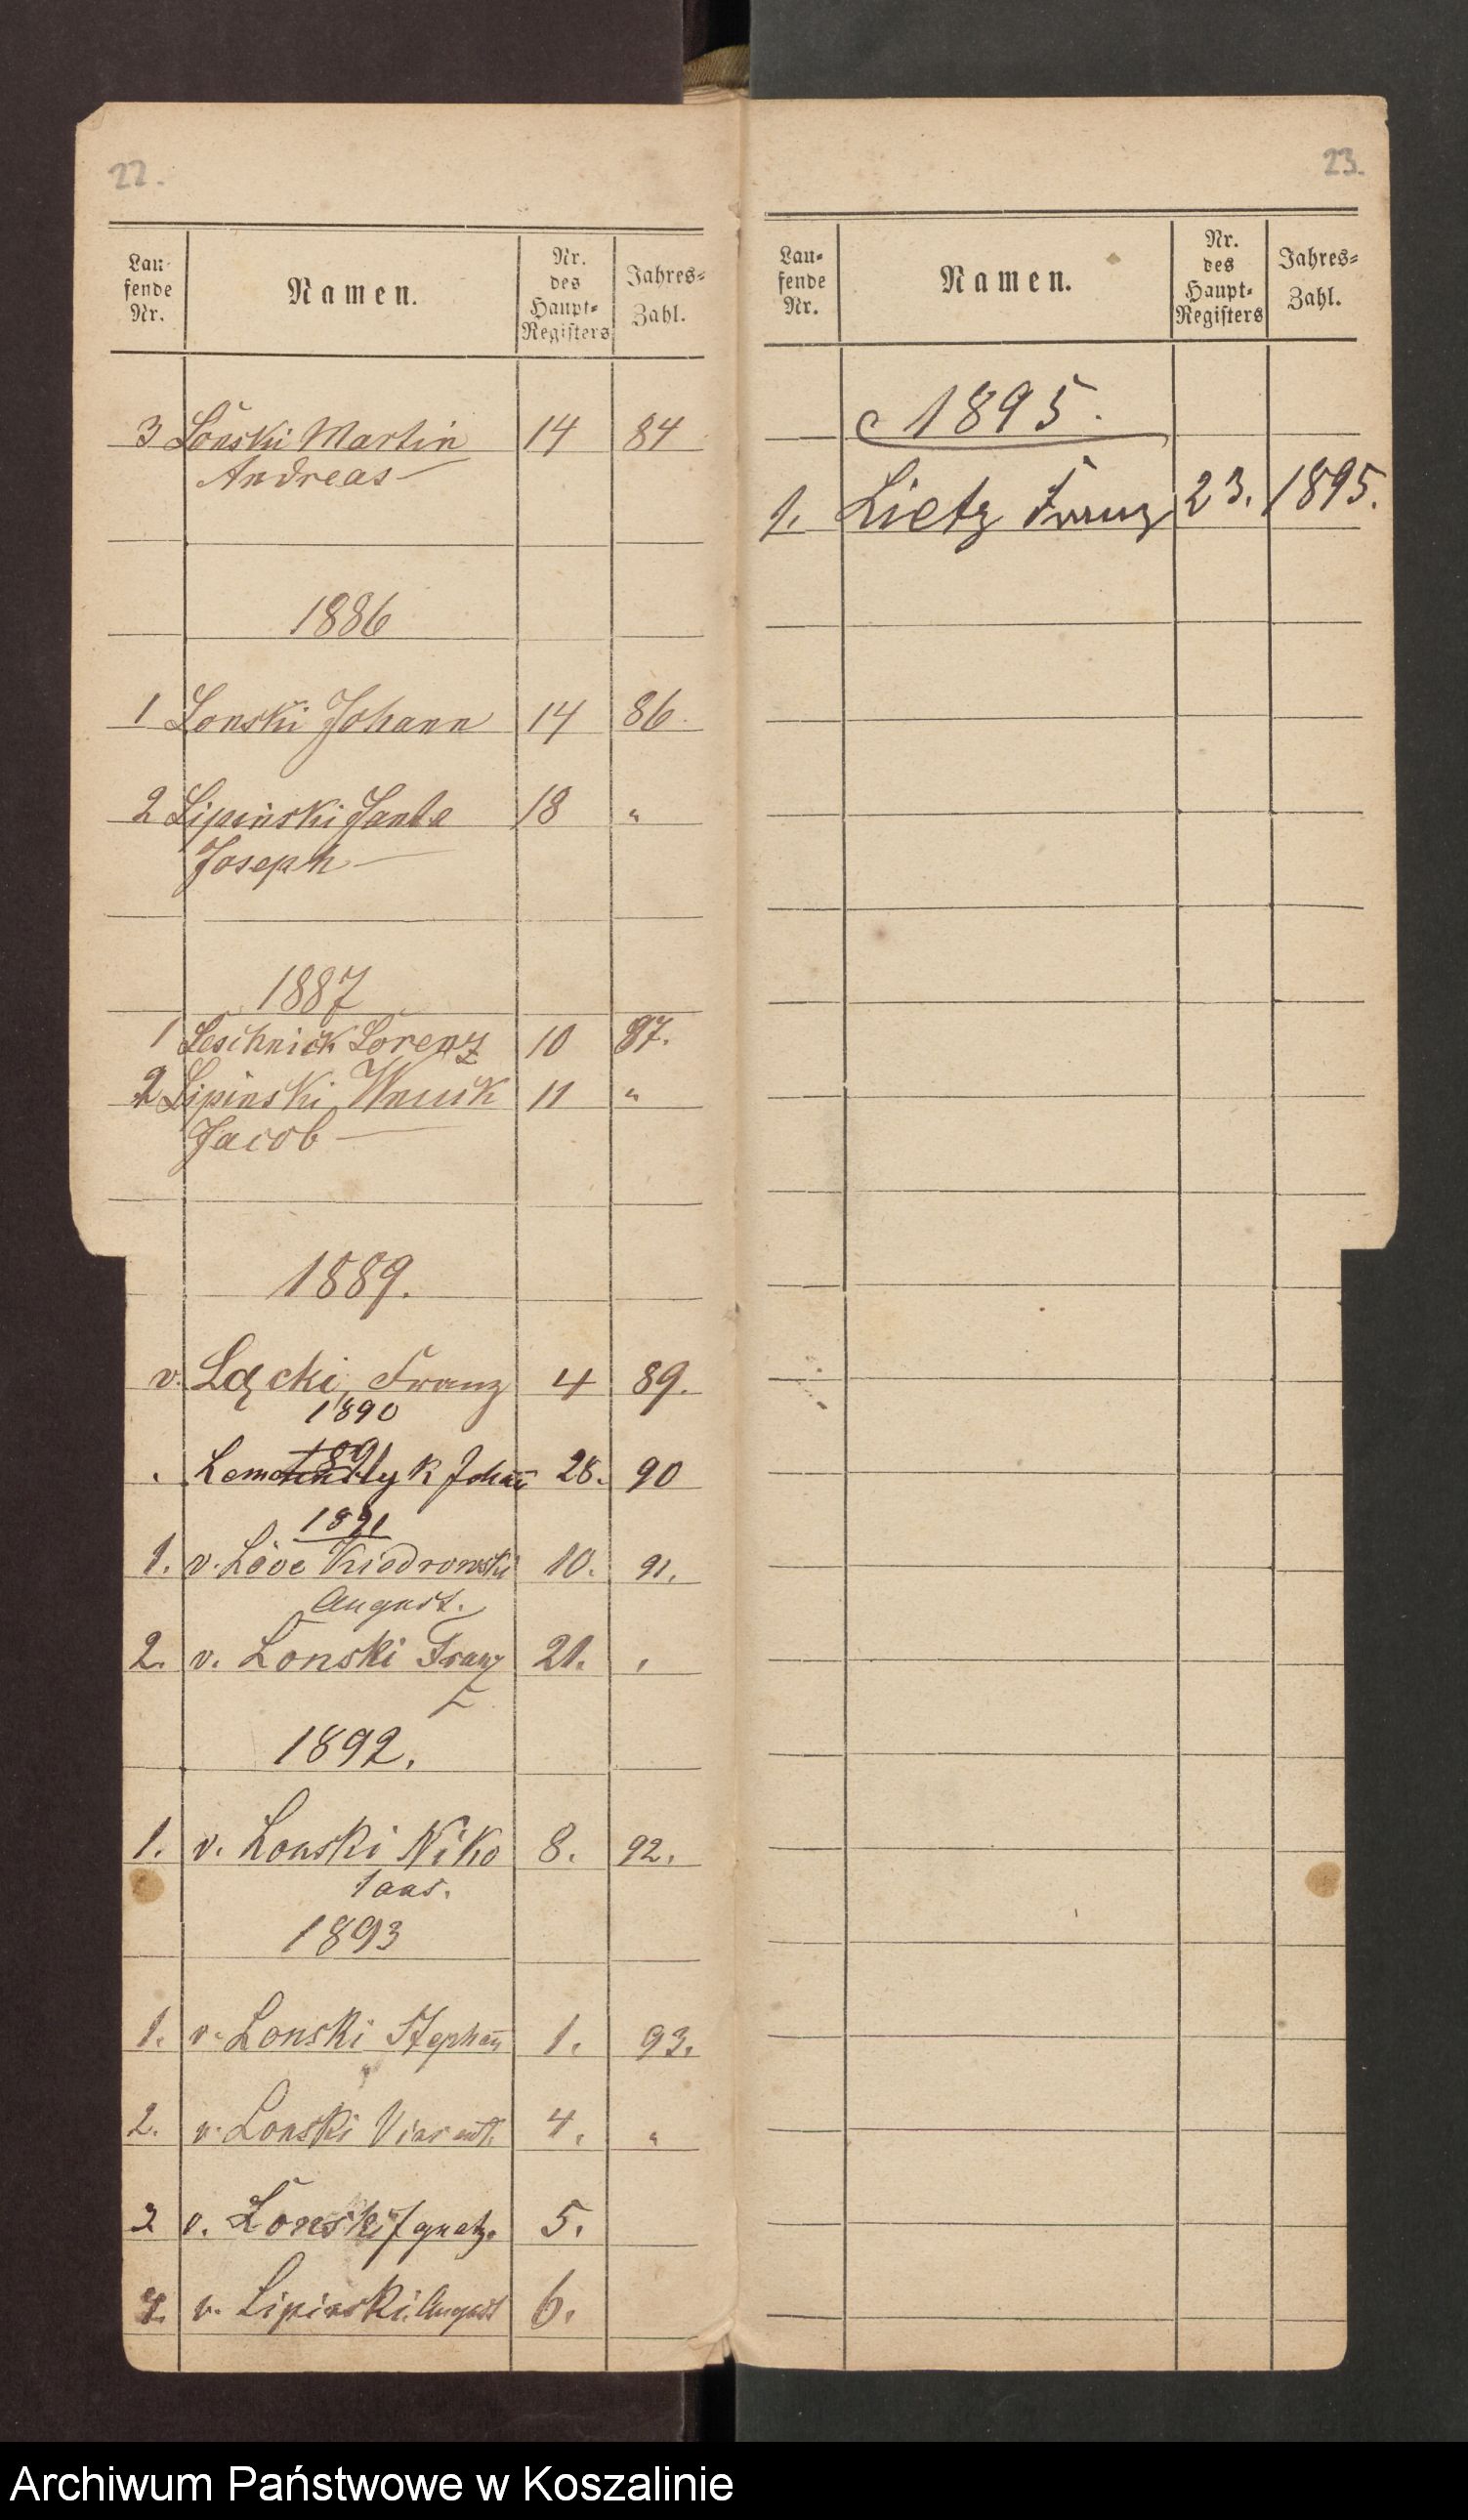 22.
Lau-
fende
Nr.
Namen.
Nr.
des
Haupt-
Registers
Jahres-
Zahl.
3 Lonski Martin 14 84
Andreas
1886
1 Lonski Johann 14 86
2 Lipinski Janta 18 "
Joseph
1887
1 Leschnick Lorenz 10 87.
2 Lipinski Wnuck 11 "
Jacob
1889.
v. Łącki, Franz 4 89.
1890
Johann 28. 90
1891
1. v. Löve Kiedrowski 10. 91.
August.
2. v. Lonski Franz 21.
1892.
1. v. Lonski Niko 8. 92.
laus.
1893
1. v. Lonski Stephan 1. 93.
2. v. Lonski 4. "
3 v. Lonski Ignatz. 5.
4. v. Lipinski August 6.
23.
Lau-
fende
Nr.
Namen.
Nr.
des
Haupt-
Registers
Jahres-
Zahl.
1895.
1. Lietz Franz 23. 1895.
Archiwum Państwowe w Koszalinie